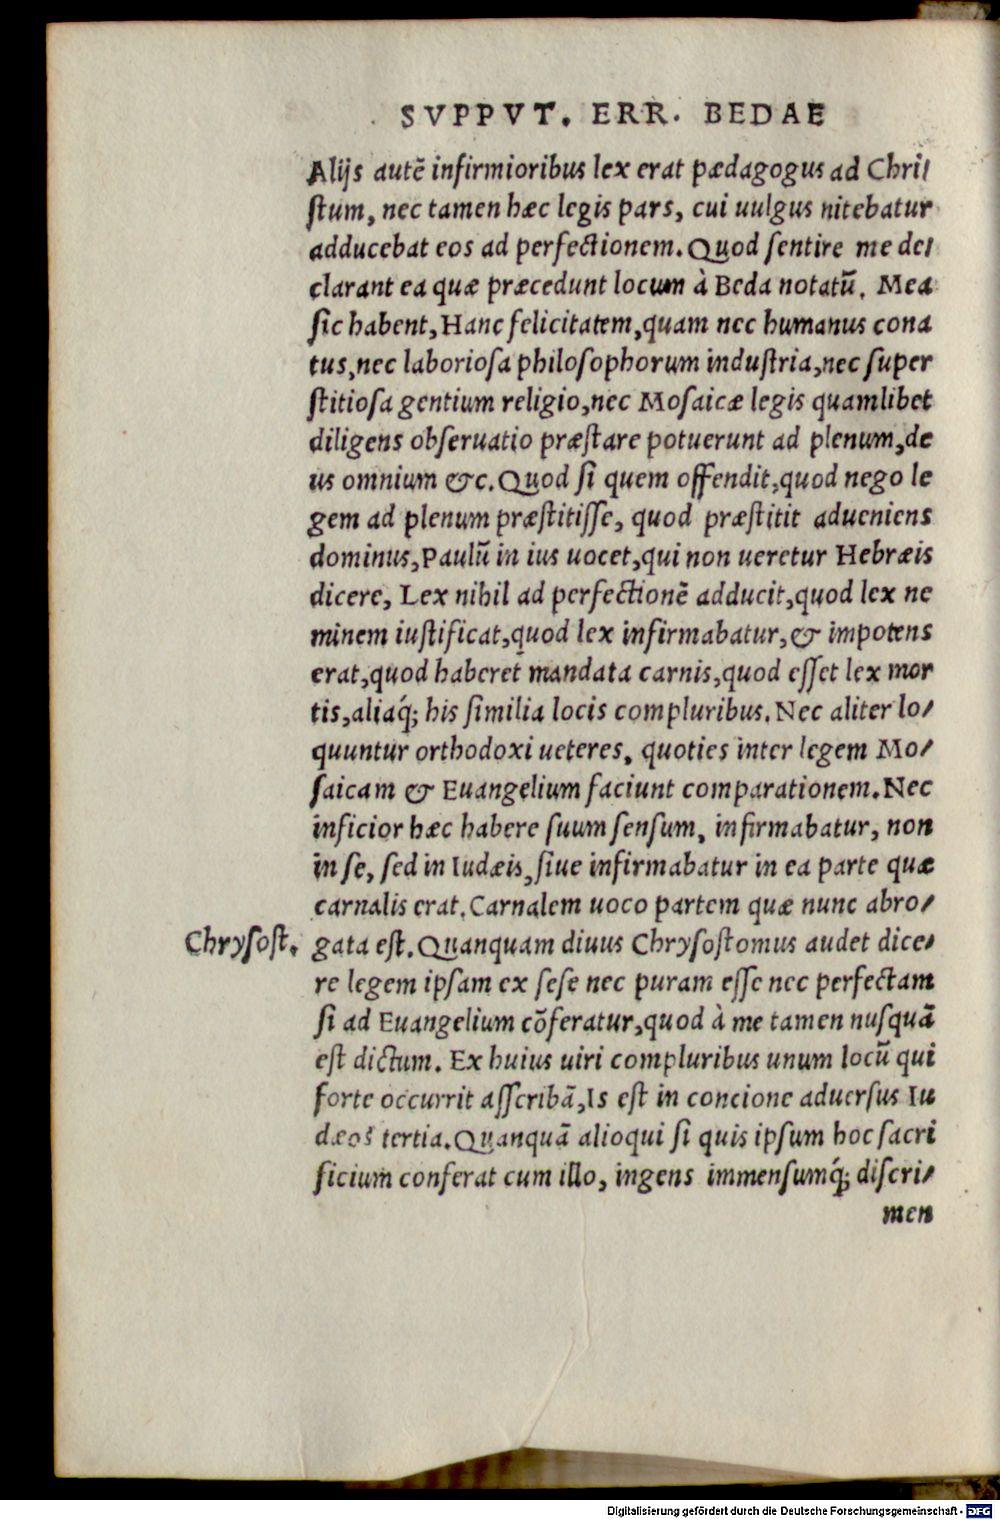 SVPPVT. ERR. BEDAE
Alijs autẽ infirmioribus lex erat pædagogus ad Chri/
ſtum, nec tamen hæc legis pars, cui uulgus nitebatur
adducebat eos ad perfectionem. Quod ſentire me de/
clarant ea quæ præcedunt locum à Beda notatũ. Mea
ſic habent, Hanc felicitatem, quam nec humanus cona
tus, nec laborioſa philoſophorum induſtria, nec ſuper
ſtitioſa gentium religio, nec Moſaicæ legis quamlibet
diligens obſeruatio præſtare potuerunt ad plenum, de
us omnium &c. Quod ſi quem offendit, quod nego le
gem ad plenum præſtitiſſe, quod præſtitit adueniens
dominus, Paulũ in ius uocet, qui non ueretur Hebræis
dicere, Lex nihil ad perfectionẽ adducit, quod lex ne
minem iuſtificat, quod lex infirmabatur, & impotens
erat, quod haberet mandata carnis, quod eſſet lex mor
tis, aliaq́; his ſimilia locis compluribus. Nec aliter lo/
quuntur orthodoxi ueteres, quoties inter legem Mo/
ſaicam & Euangelium faciunt comparationem. Nec
inficior hæc habere ſuum ſenſum, infirmabatur, non
in ſe, ſed in Iudæis, ſiue infirmabatur in ea parte quæ
carnalis erat. Carnalem uoco partem quæ nunc abro/
Chryſoſt.
gata eſt. Quanquam diuus Chryſoſtomus audet dice/
re legem ipſam ex ſeſe nec puram eſſe nec perfectam
ſi ad Euangelium cõferatur, quod à me tamen nuſquã
eſt dictum. Ex huius uiri compluribus unum locũ qui
forte occurrit aſſcribã, Is eſt in concione aduerſus Iu
dæos tertia. Quanquã alioqui ſi quis ipſum hoc ſacri
ficium conferat cum illo, ingens immenſumq́; diſcri/
men
Digitalisierung gefördert durch die Deutsche Forschungsgemeinschaft - DFG